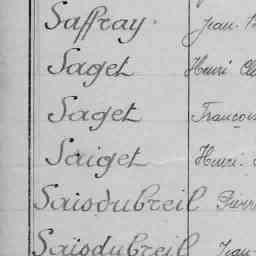 Saffray. Jean-
Saget Henri
Saget François
Saiget Henri-
Saisdubreil Pierre
Saisdubreil Jean-